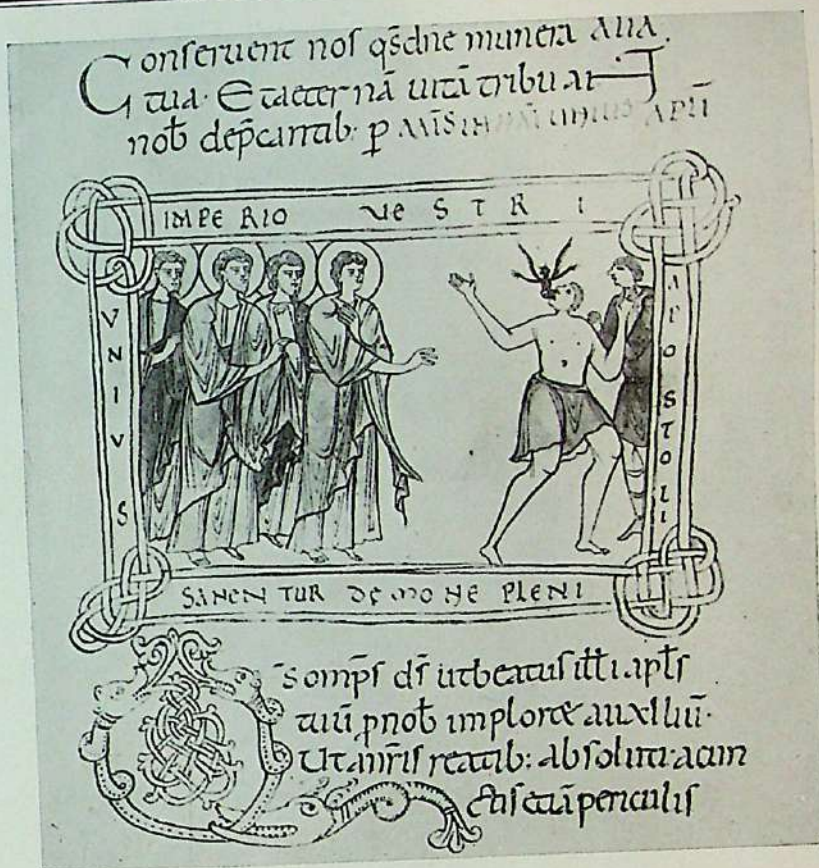 Conseruent nos qs̄ dn̄e munera
tua. Et aeternā uitā tribuat
nob dep̄cantib: p
IMPERIO VESTRI
VNIVS
APOSTOLI
SANENTUR DEMONE PLENI
s omp̄s ds̄ ut beatus ill̄i apl̄s
tuū p nob imploret auxiliū.
Ut anr̄is reatib: absoluti. a cun
ctis etiā periculis